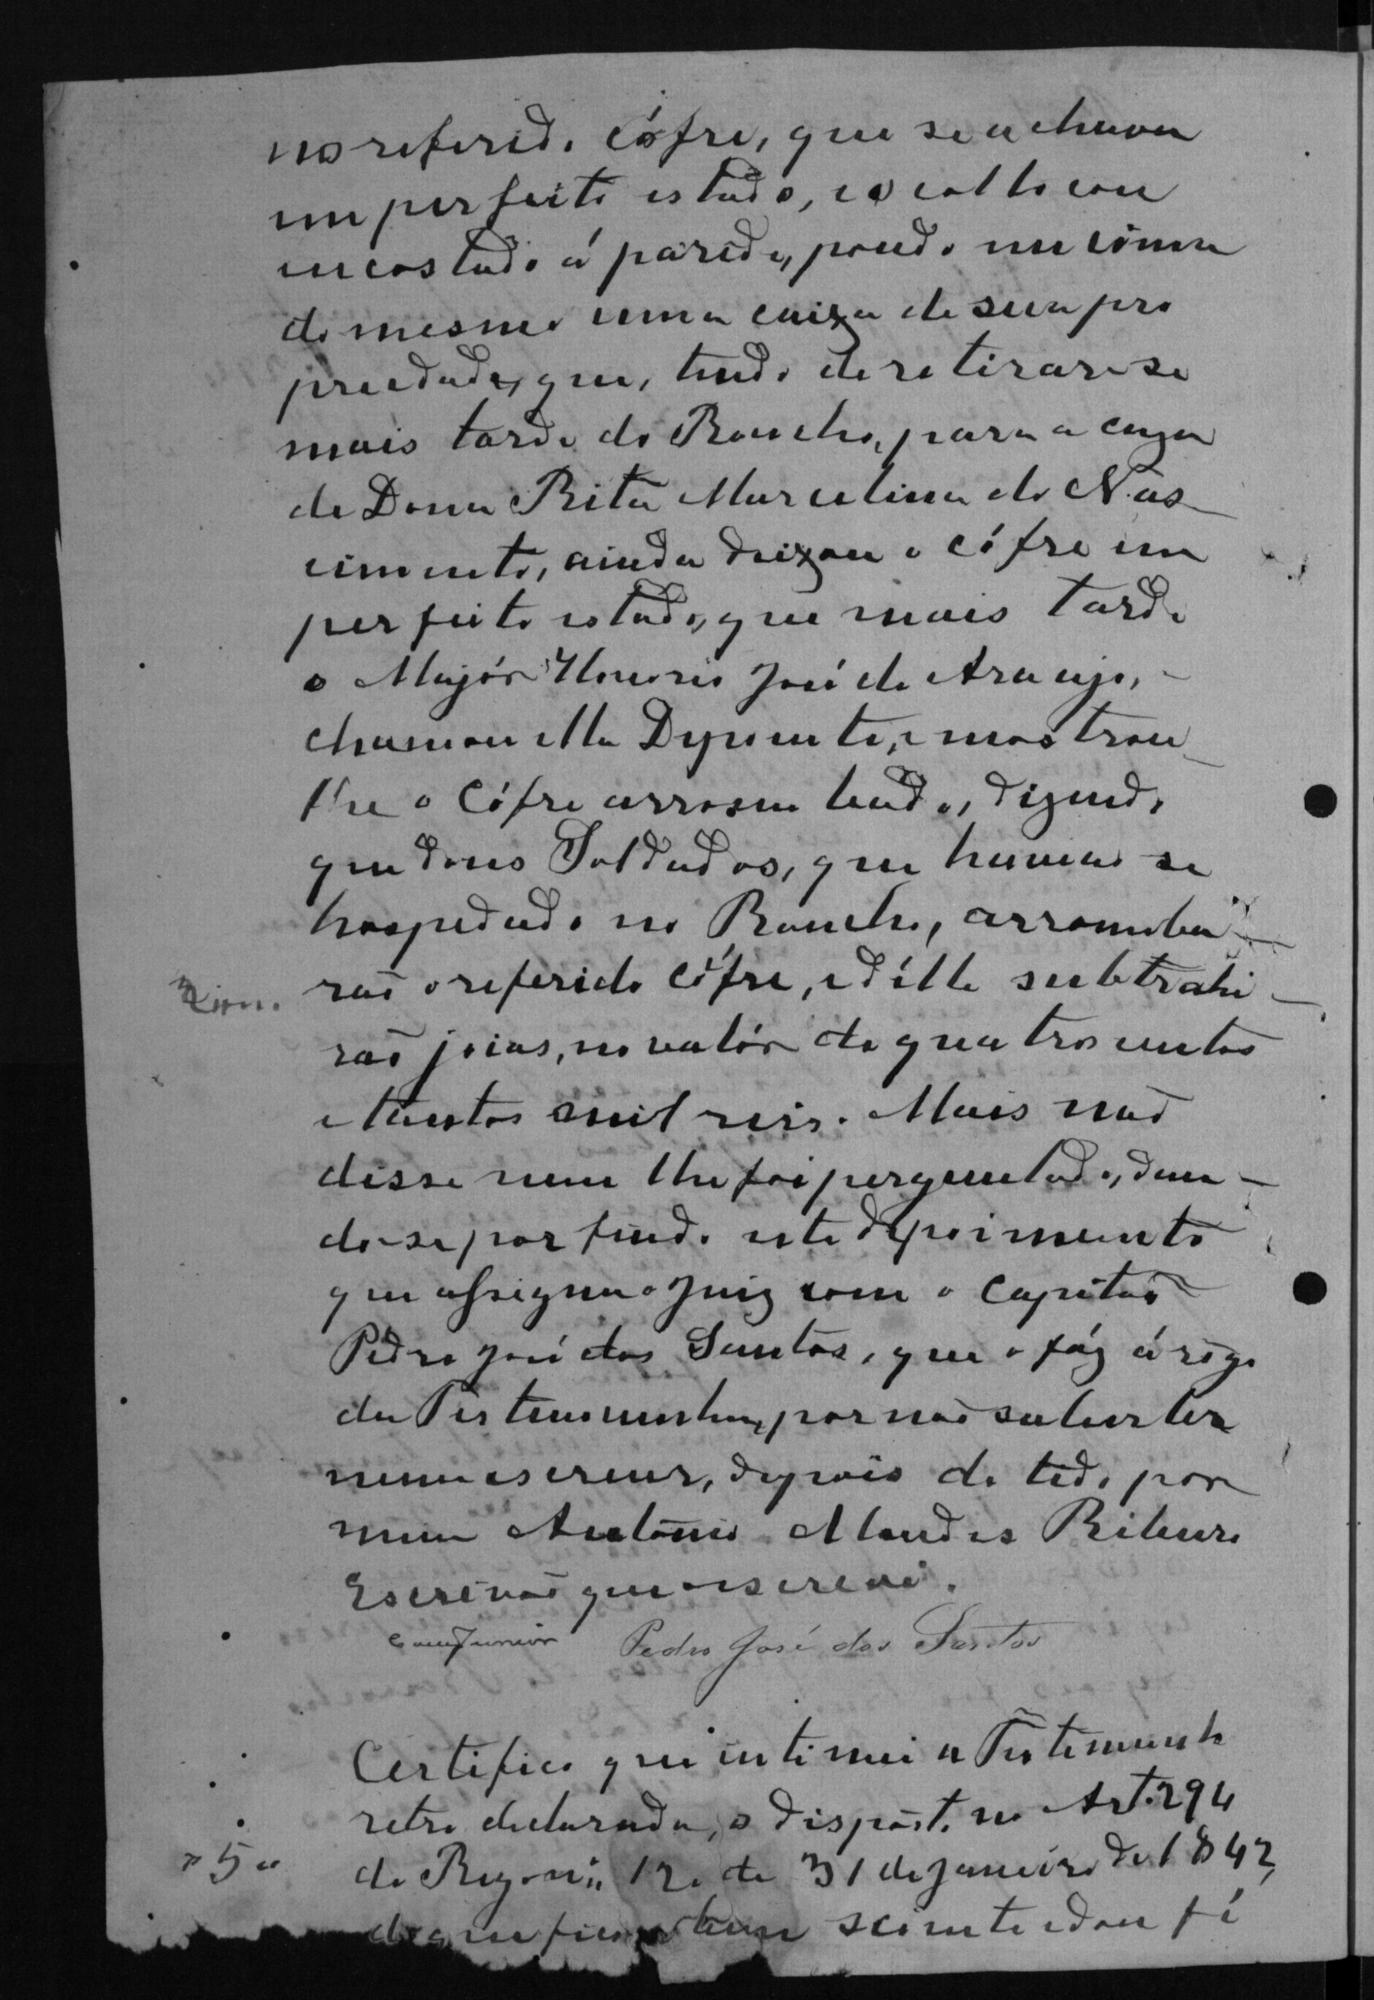 no referido cófre, que se achava
em perfeito estado, e o collocou
encostado á parede, pondo em cima
do mesmo uma caixa de sua pro
priedade, que, tendo de retirar-se
mais tarde do Rancho, para a caza
de Dona Rita Marcelina do Nas_
cimento, ainda deixou o cófre em
perfeito estado, que mais tarde
o Majór Honorio José de Araujo, -
chamou ella Depoente, e mostrou_
lhe o Cófre arrombado, dizendo
que dous Soldados, que haviaõ se
hospedado no Rancho, arromba_
raõ o referido Cófre, e délle subtrahi_
raõ joias, no valór de quatro centos
e tantos mil reis. Mais naõ
disse nem lhe foi perguntado, dan_
do-se por findo este depoimento
que assigna o Juiz com o Capitaõ
Pedro José dos Santos, que o fáz á rógo
da Testemunha, por naõ saber ler
nem escrever, depois de lido por
mim Antonio Mendes Ribeiro
Escrivaõ que o escrevi.
Junior Pedro José dos Santos
Certifico que intimei a Testemunh
retro declarada, o disposto no Art. 294
do Reg. nº 120 de 31 de Janeiro de 1842,
do que ficou bem sciente e dou fé